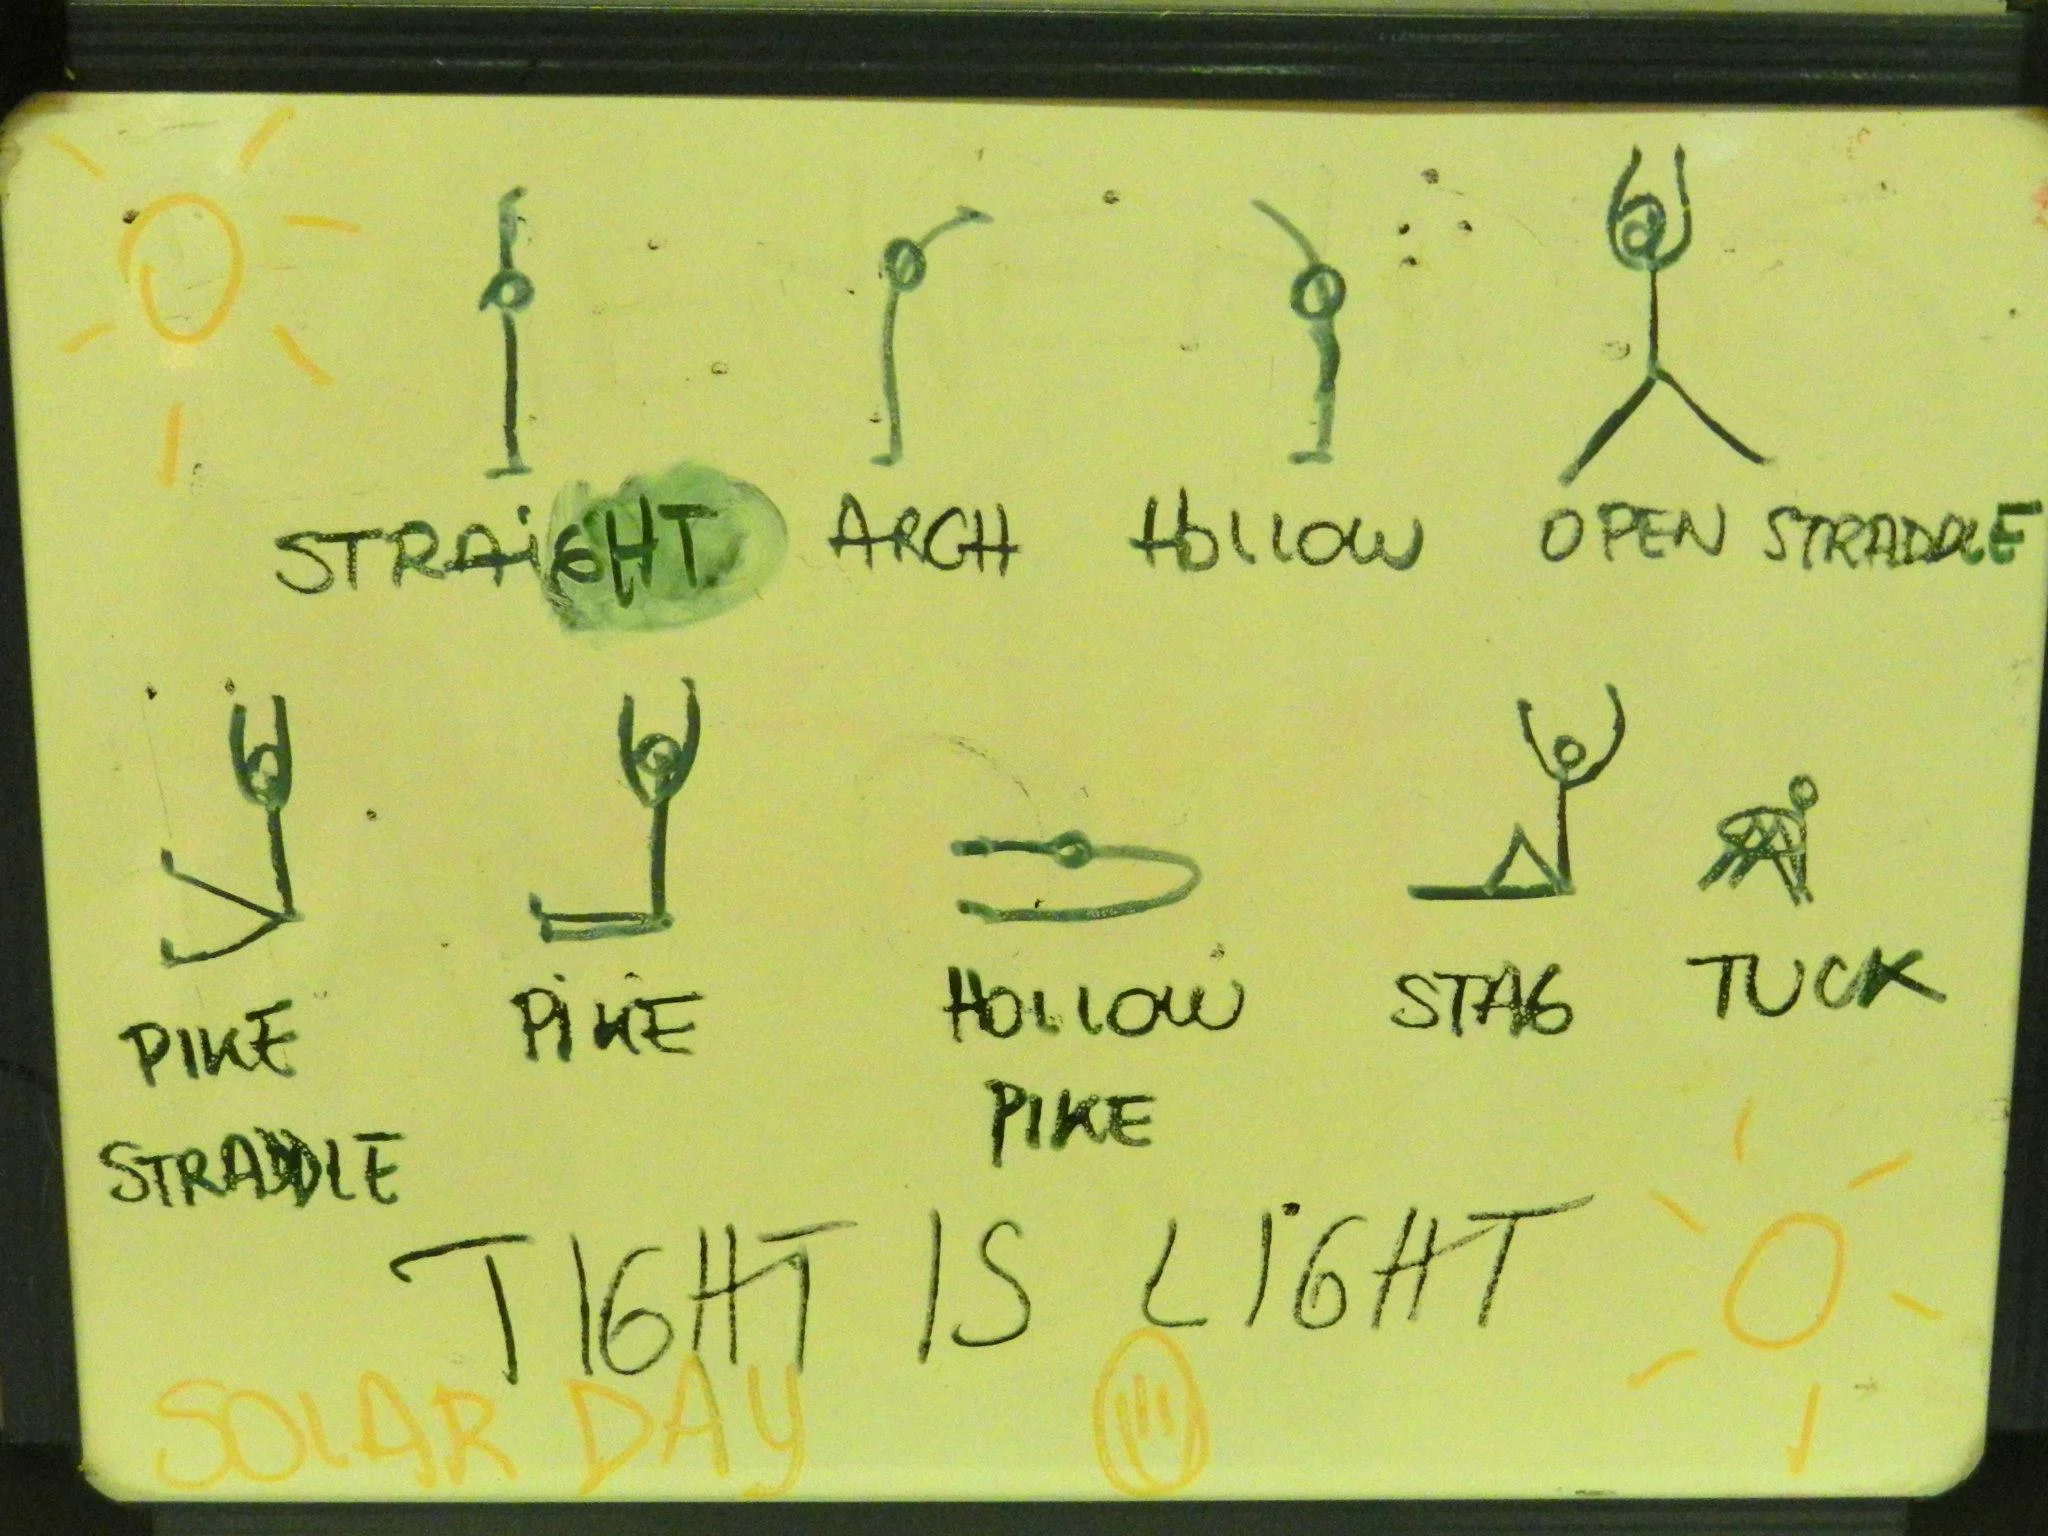 STRAiGHT ARCH HOLLOW OPEN STRADDLE
PIKE PiKE HOLLOW STAG TUCK
STRADDLE PIKE
TIGHT IS LIGHT
SOLAR DAY